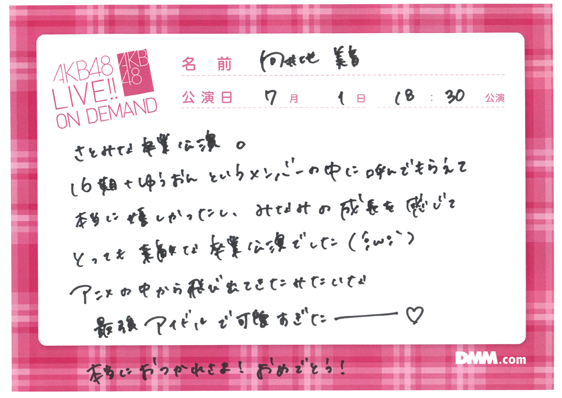 AKB48
LIVE!!
ON DEMAND
AKB
48
名前 向井地 美音
公演日 7月 1日 18:30 公演
さとみな卒業公演。
16期+ゆうおん というメンバーの中に呼んでもらえて
本当に嬉しかったし、みなみの成長を感じて
とっても素敵な卒業公演でした(;ω;`)
アニメの中から飛び出てきたみたいな
最強アイドルで可愛すぎたーーー♡
本当におつかれさま!おめでとう!
DMM.com